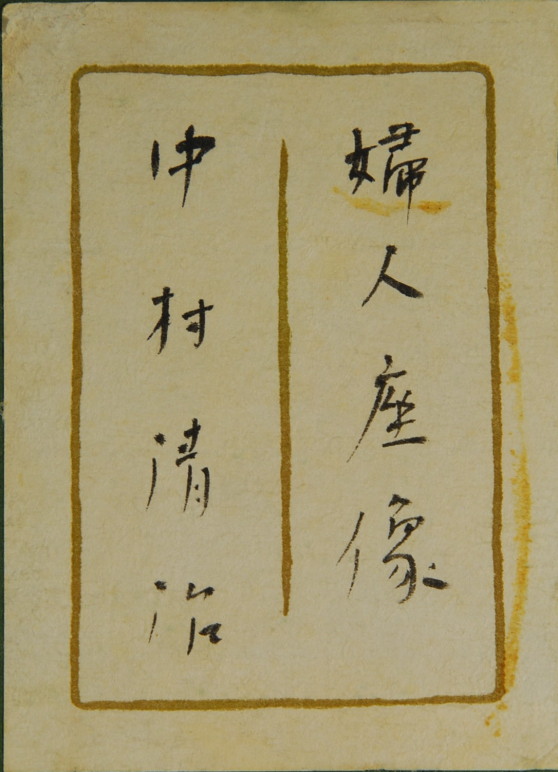 婦人座像
中村清治